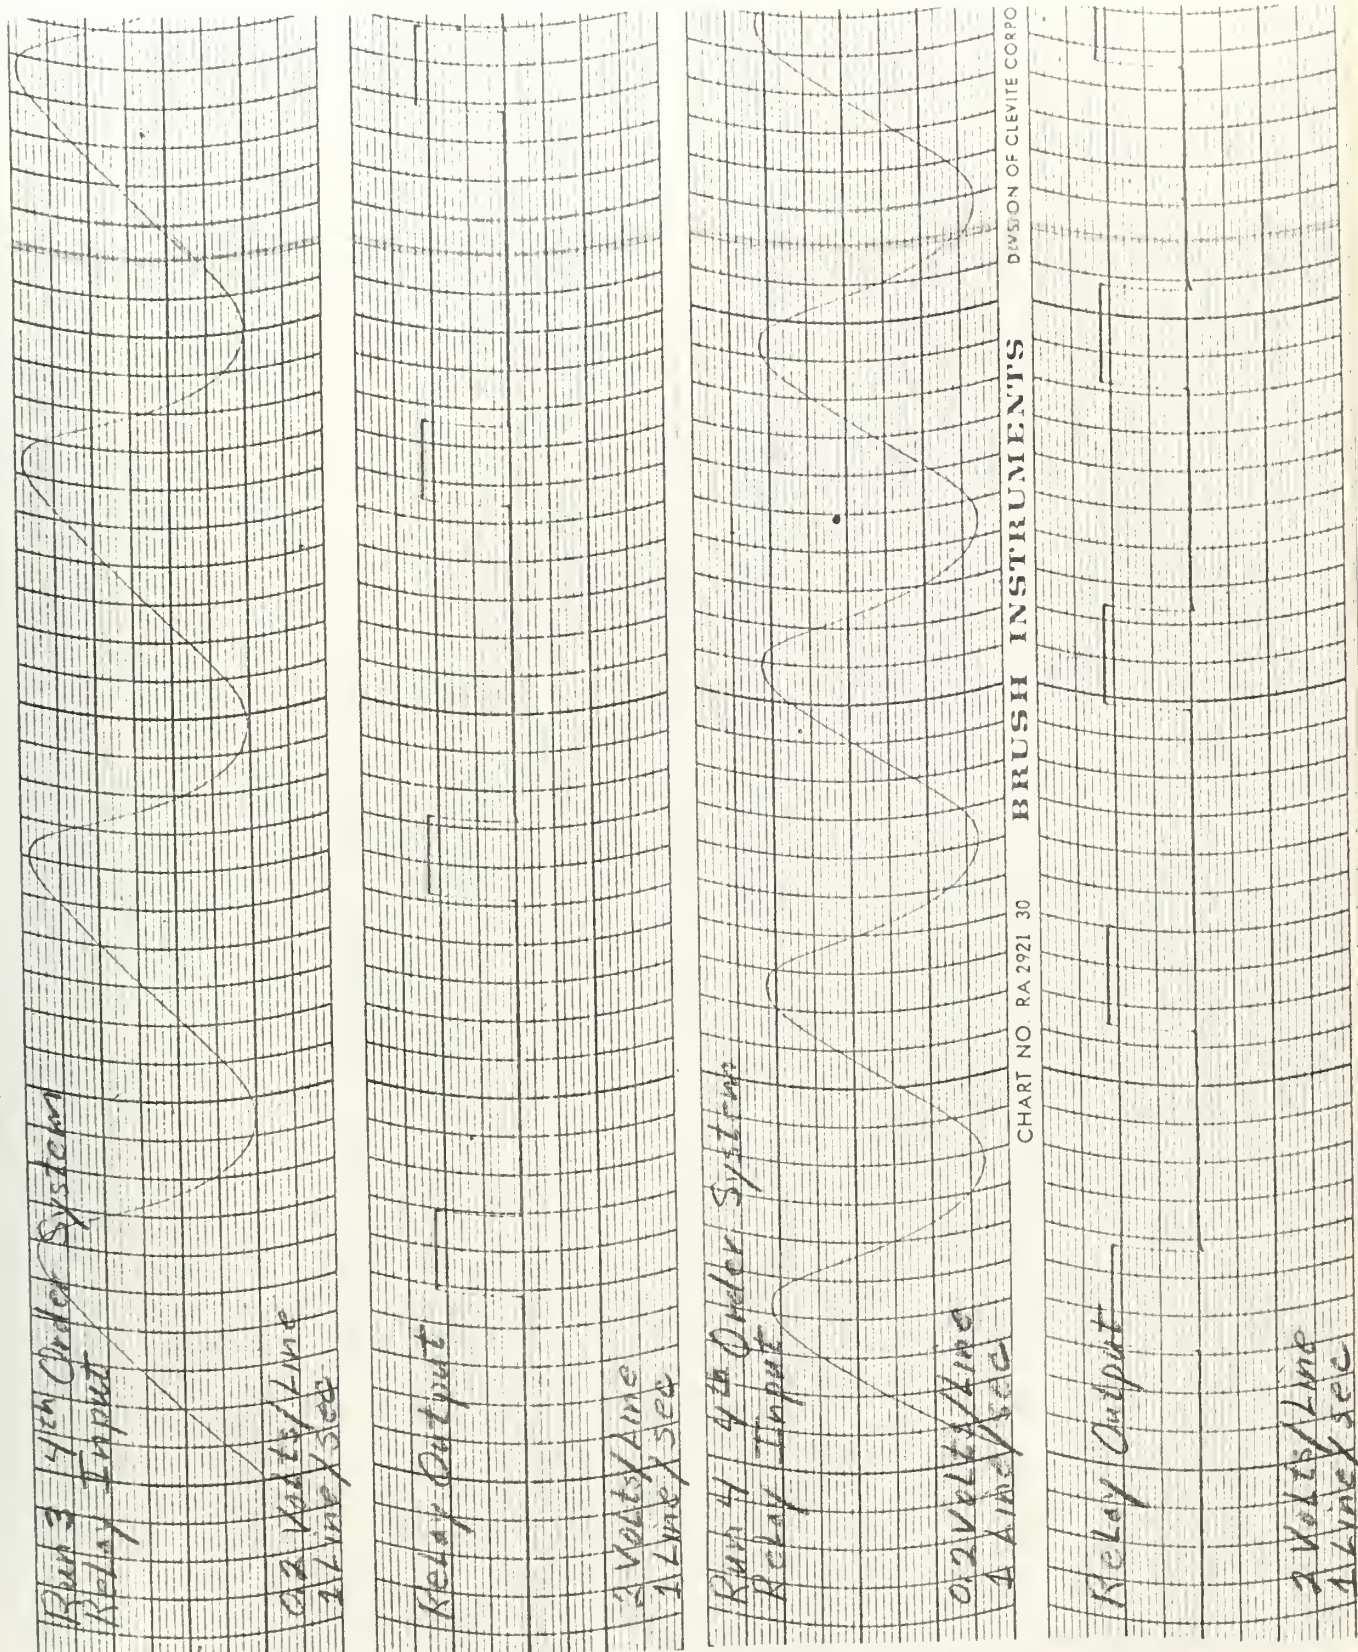 Run 3 4th Order System
Relay Input
0.2 Volts/Line
1 Line/sec
Relay Output
2 Volts/Line
1 Line/sec
Run 4 4th Order System
Relay Input
0.2 Volts/Line
1 Line/sec
CHART NO. RA 2921 30 BRUSH INSTRUMENTS DIVISION OF CLEVITE CORPO
Relay Output
2 Volts/Line
1 Line/sec